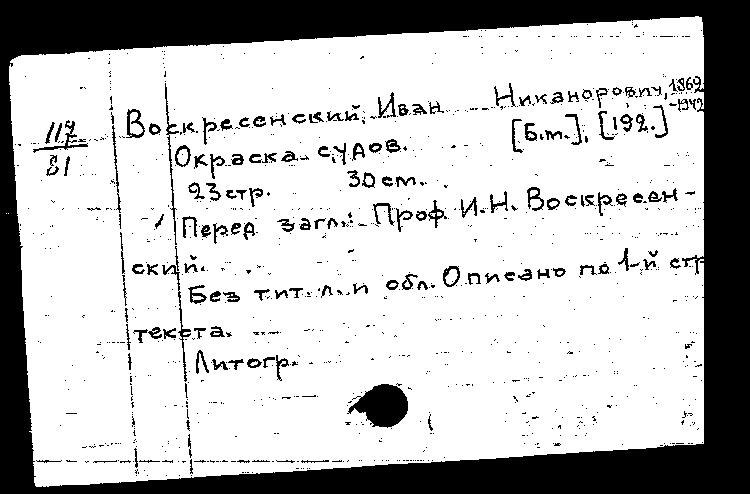 117
81
Воскресенский, Иван Никанорович, 1869
-1942
Окраска судов. [Б.т.], [192.]
23 стр. 30 см.
Перед загл.: Проф И.Н. Воскресен-
ский.
Без тит. л. и обл. Описано по 1-й стр
текста.
Литогр.